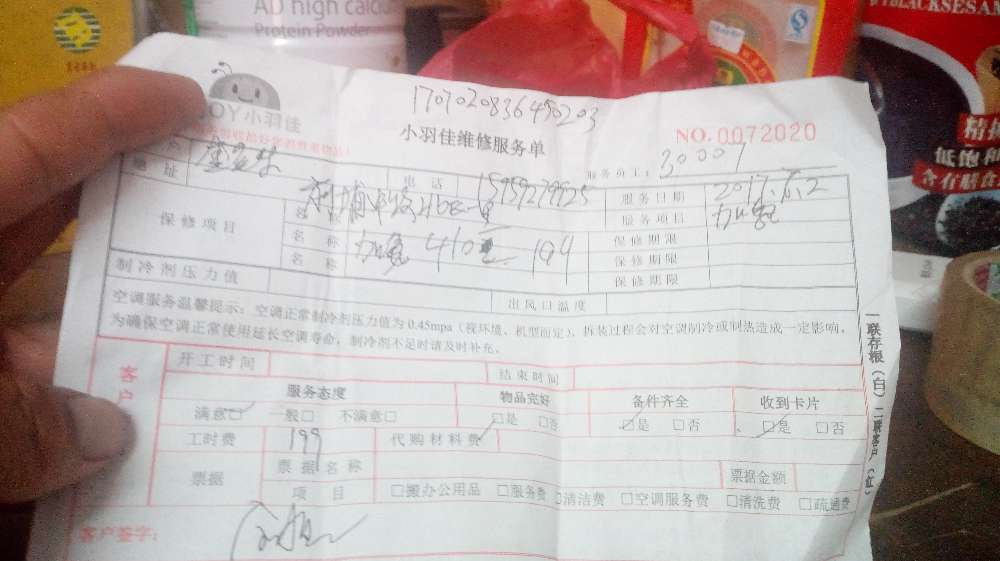 AD high calciu
Protein Powder
BLACKSESAM
精
低饱和
含有膳食
JOY小羽佳
1707020836450203
小羽佳维修服务单
NO.0072020
服务员工: 30007
地址
电话 15959279925
服务日期
保修项目
名称
服务项目 加氟
名称 加氟 410
保修期限
名称
保修期限
保修期限
制冷剂压力值
出风口温度
空调服务温馨提示: 空调正常制冷剂压力值为0.45mpa (视环境、机型而定)、拆装过程会对空调制冷或制热造成一定影响,
为确保空调正常使用延长空调寿命, 制冷剂不足时请及时补充。
客户
开工时间
结束时间
服务态度
物品完好
备件齐全
收到卡片
满意□ 一般□ 不满意□
□是 □否
□是 □否
□是 □否
工时费 199
代购材料费
票据
票据名称
票据金额
项目
□搬办公用品 □服务费 □清洁费 □空调服务费 □清洗费 □疏通费
客户签字:
一联存根(白) 二联客户(红)